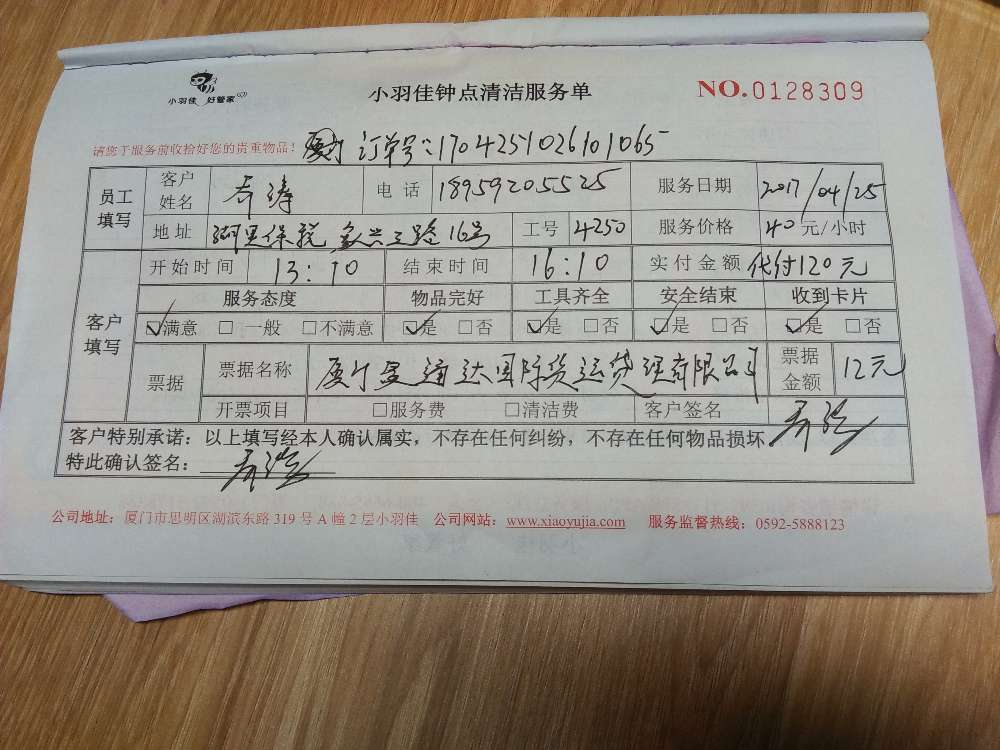 小羽佳 好管家
小羽佳钟点清洁服务单
NO.0128309
请您于服务前收拾好您的贵重物品！ 订单号：1704251026101065
员工填写 客户姓名 涛 电话 18959205525 服务日期 2017/04/25
地址 保税 路16号 工号 4250 服务价格 40元/小时
开始时间 13:10 结束时间 16:10 实付金额 代付120元
服务态度 物品完好 工具齐全 安全结束 收到卡片
客户填写 ☑满意 □一般 □不满意 ☑是 □否 ☑是 □否 ☑是 □否 ☑是 □否
票据 票据名称 厦门盈通达国际货运代理有限公司 票据金额 12元
开票项目 □服务费 □清洁费 客户签名
客户特别承诺：以上填写经本人确认属实，不存在任何纠纷，不存在任何物品损坏
特此确认签名：
公司地址：厦门市思明区湖滨东路 319 号 A 幢 2 层小羽佳 公司网站：www.xiaoyujia.com 服务监督热线：0592-5888123